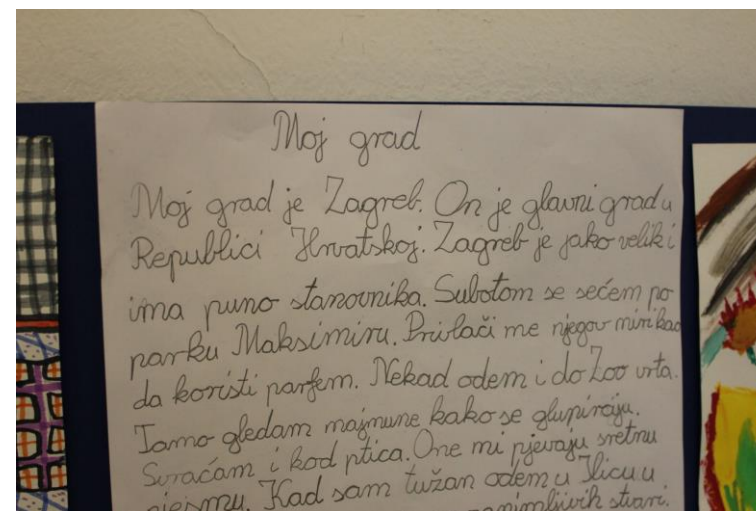 Moj grad
Moj grad je Zagreb. On je glavni grad u
Republici Hrvatskoj. Zagreb je jako velik i
ima puno stanovnika. Subotom se sećem po
parku Maksimiru. Privlači me njegov miris kao
da koristi parfem. Nekad odem i do Zoo vrta.
Tamo gledam majmune kako se glupiraju.
Svraćam i kod ptica. One mi pjevaju sretnu
pjesmu. Kad sam tužan odem u Ilicu u
zanimljivih stvari.